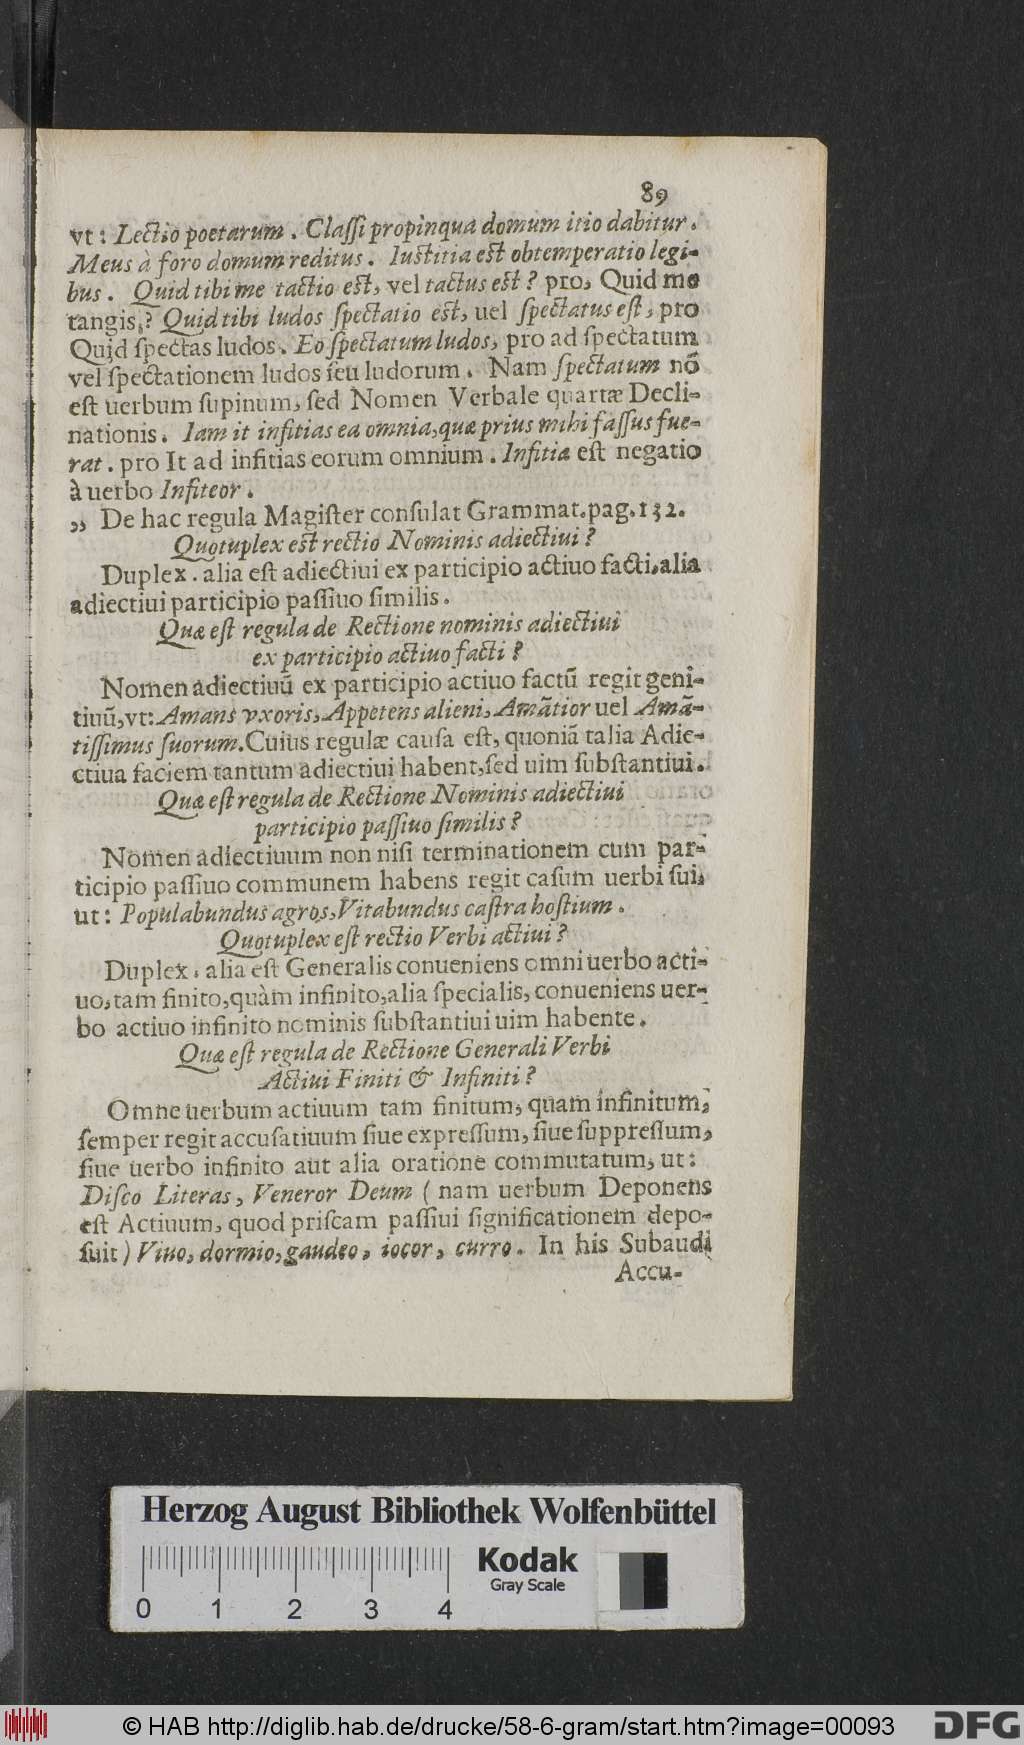 89
vt: Lectio poetarum. Classi propinqua domum itio dabitur.
Meus à foro domum reditus. Iustitia est obtemperatio legi-
bus. Quid tibi me tactio est, vel tactus est? pro, Quid me
tangis,? Quid tibi ludos spectatio est, uel spectatus est, pro
Quid spectas ludos. Eo spectatum ludos, pro ad spectatum
vel spectationem ludos seu ludorum. Nam spectatum nõ
est uerbum supinum, sed Nomen Verbale quartæ Decli-
nationis. Iam it infitias ea omnia, quæ prius mihi fassus fue-
rat. pro It ad infitias eorum omnium. Infitia est negatio
à uerbo Infiteor.
„ De hac regula Magister consulat Grammat. pag. 132.
Quotuplex est rectio Nominis adiectiui?
Duplex. alia est adiectiui ex participio actiuo facti, alia
adiectiui participio passiuo similis.
Quæ est regula de Rectione nominis adiectiui
ex participio actiuo facti?
Nomen adiectiuũ ex participio actiuo factũ regit geni-
tiuũ, vt: Amans vxoris, Appetens alieni, Amãtior uel Amã-
tissimus suorum. Cuius regulæ causa est, quoniã talia Adie-
ctiua faciem tantum adiectiui habent, sed uim substantiui.
Quæ est regula de Rectione Nominis adiectiui
participio passiuo similis?
Nomen adiectiuum non nisi terminationem cum par-
ticipio passiuo communem habens regit casum uerbi sui,
ut: Populabundus agros, Vitabundus castra hostium.
Quotuplex est rectio Verbi actiui?
Duplex. alia est Generalis conueniens omni uerbo acti-
uo, tam finito, quàm infinito, alia specialis, conueniens uer-
bo actiuo infinito nominis substantiui uim habente.
Quæ est regula de Rectione Generali Verbi
Actiui Finiti & Infiniti?
Omne uerbum actiuum tam finitum, quam infinitum,
semper regit accusatiuum siue expressum, siue suppressum,
siue uerbo infinito aut alia oratione commutatum, ut:
Disco Literas, Veneror Deum (nam uerbum Deponens
est Actiuum, quod priscam passiui significationem depo-
suit) Viuo, dormio, gaudeo, iocor, curro. In his Subaudi
Accu-
Herzog August Bibliothek Wolfenbüttel
Kodak
Gray Scale
0 1 2 3 4
© HAB http://diglib.hab.de/drucke/58-6-gram/start.htm?image=00093
DFG